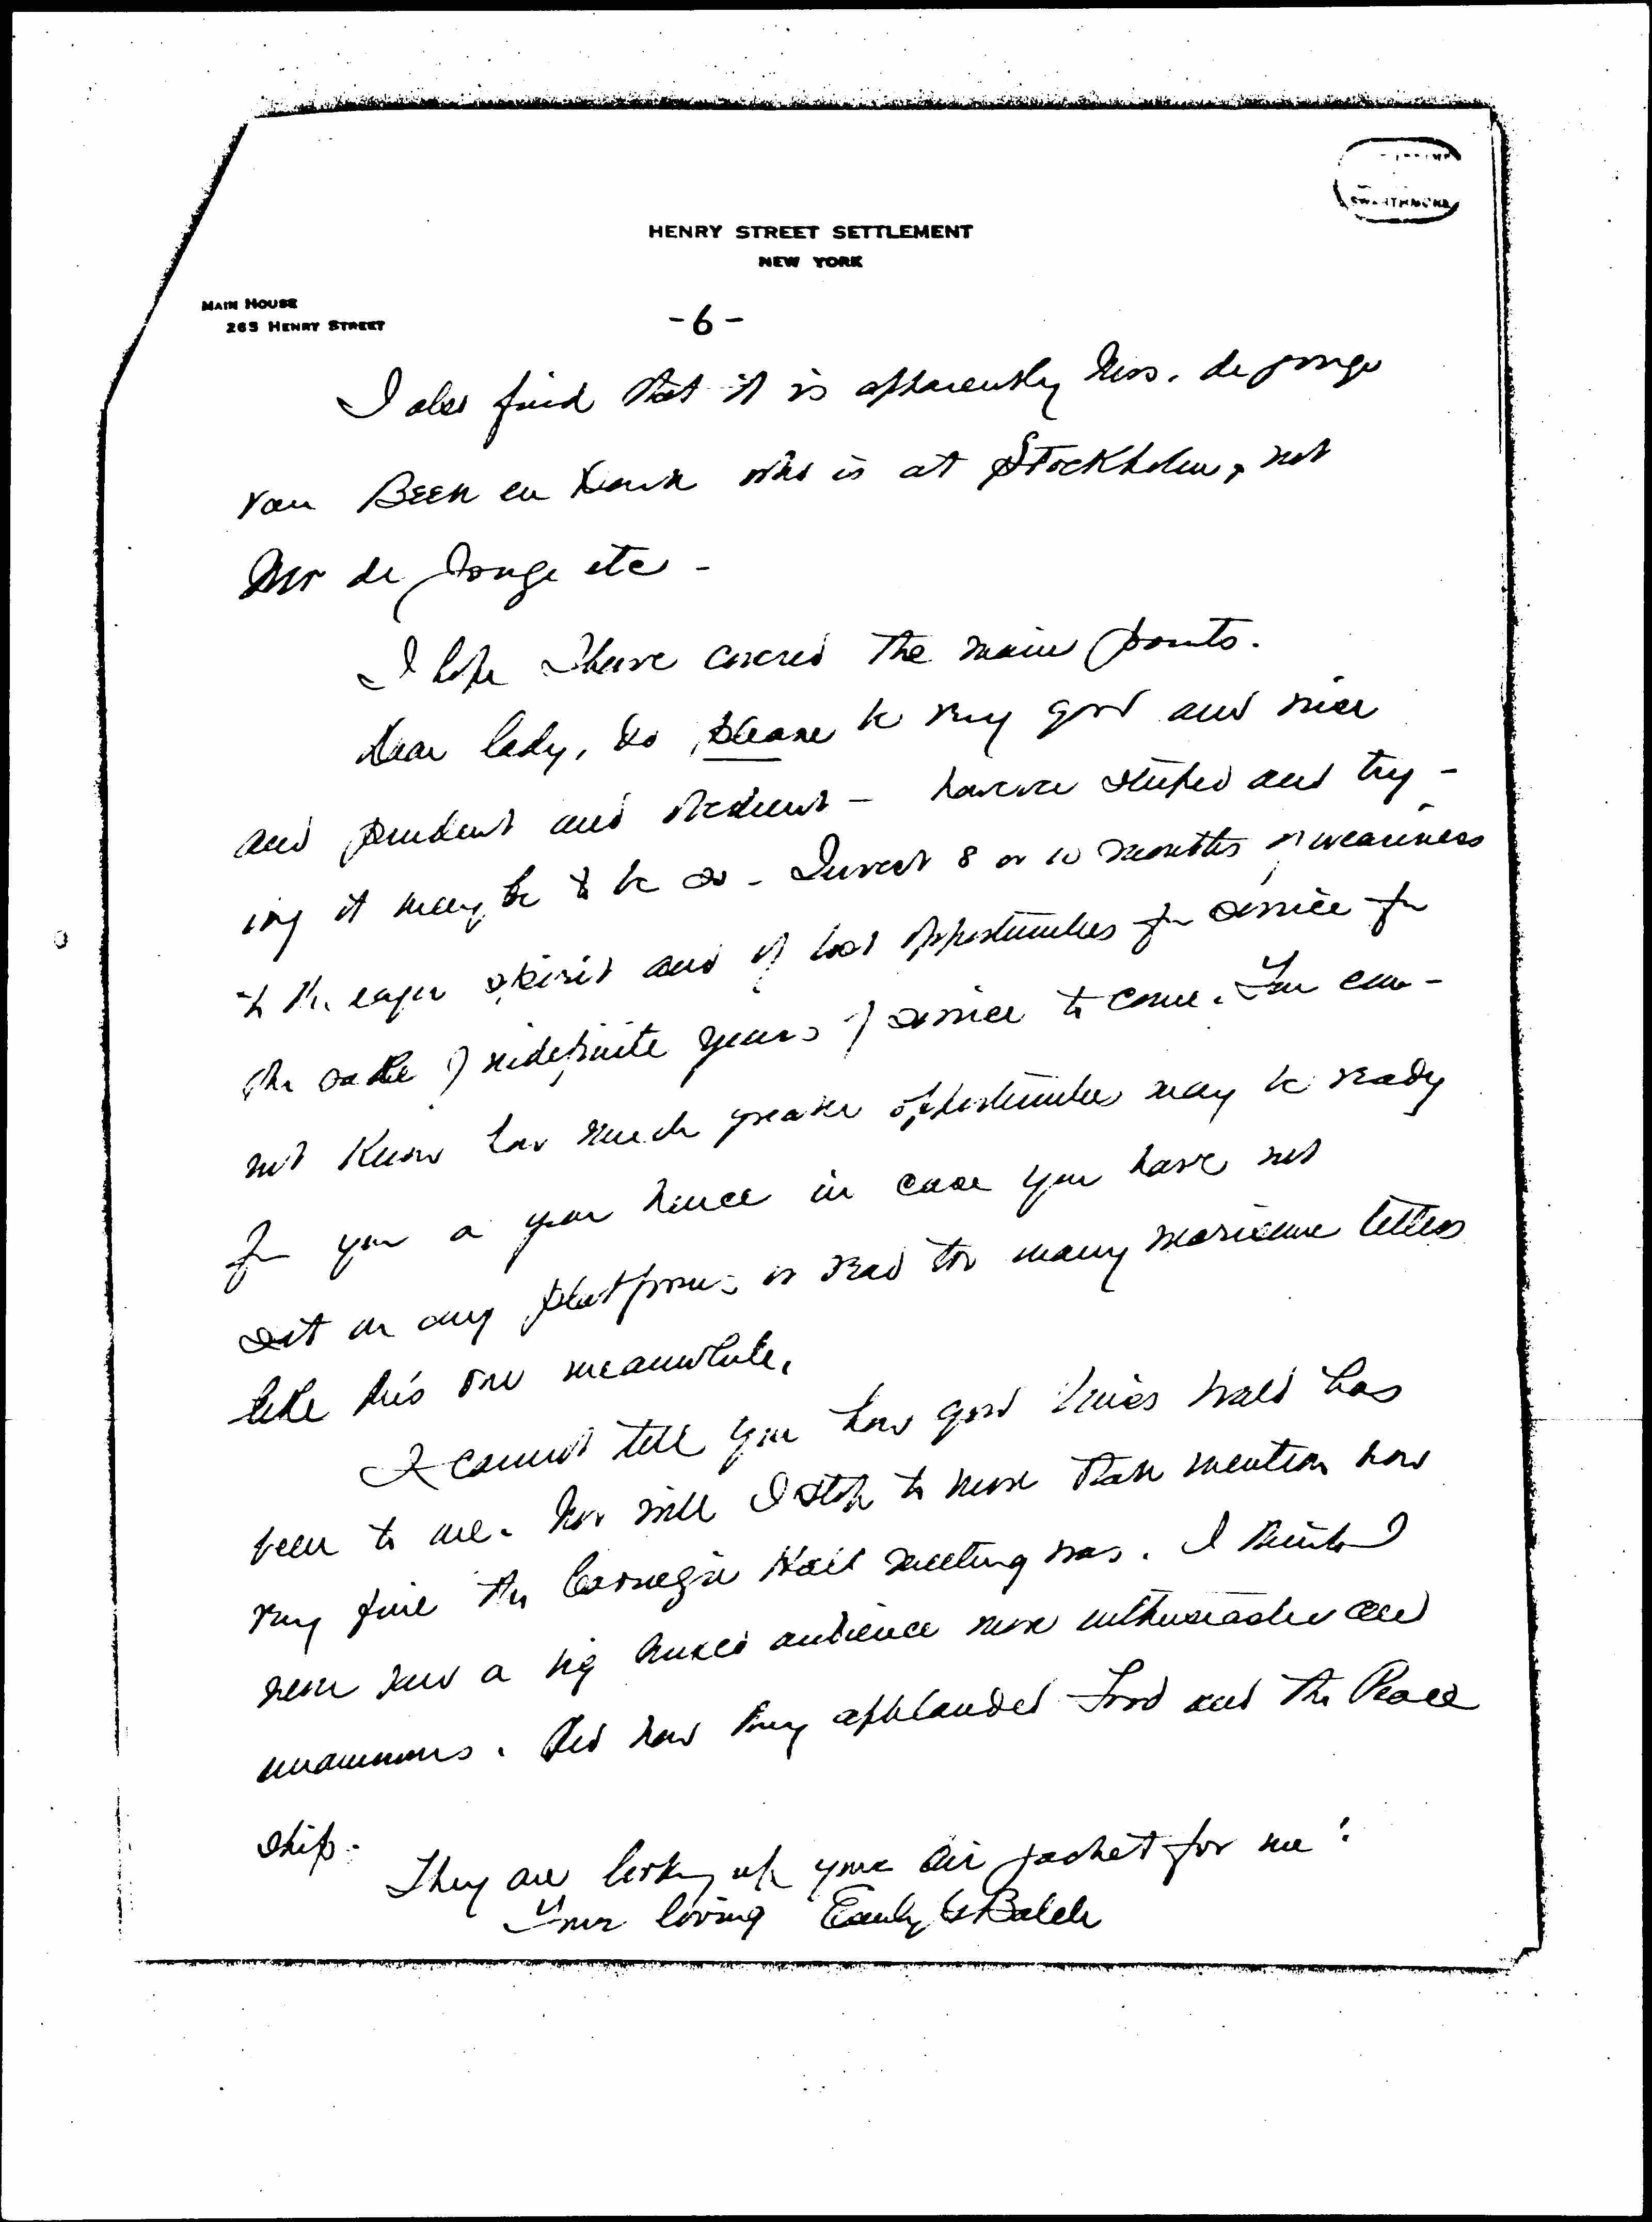 SWARTHMORE
HENRY STREET SETTLEMENT
NEW YORK
MAIN HOUSE
265 HENRY STREET
-6-
I also find that it is apparently Mrs. de Jonge
van Beek en Donk who is at Stockholm, not
Mr de Jonge etc -
I hope I have covered the main points.
Dear lady, do please be very good and nice
and prudent and obedient - however stupid and try-
ing it may be to be so - Invest 8 or 10 months of weariness
to the eager spirit and of lost opportunities for service for
the sake of indefinite years of service to come. You can-
not know how much greater opportunities may be ready
for you a year hence in case you have not
sat on any platforms or read too many tiresome letters
like this one meanwhile.
I cannot tell you how good Miss Wald has
been to me. Nor will I stop to more than mention how
very fine the Carnegie Hall meeting was. I think I
never saw a big mixed audience more enthusiastic and
unanimous. And how they applauded Ford and the Peace
Ship.
They are looking up your air jacket for me!
Your loving Emily G Balch